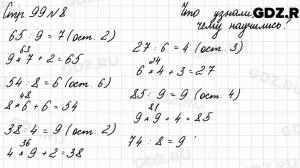 Стр. 99 N8
Что узнали,
чему научились?
GDZ.R
65 : 9 = 7 (ост. 2)
63
9 * 7 + 2 = 65
54 : 8 = 6 (ост. 6)
48
8 * 6 + 6 = 54
38 : 4 = 9 (ост. 2)
36
4 * 9 + 2 = 38
27 : 6 = 4 (ост. 3)
24
6 * 4 + 3 = 27
85 : 9 = 9 (ост. 4)
81
9 * 9 + 4 = 85
74 : 8 = 9
GDZ.RU